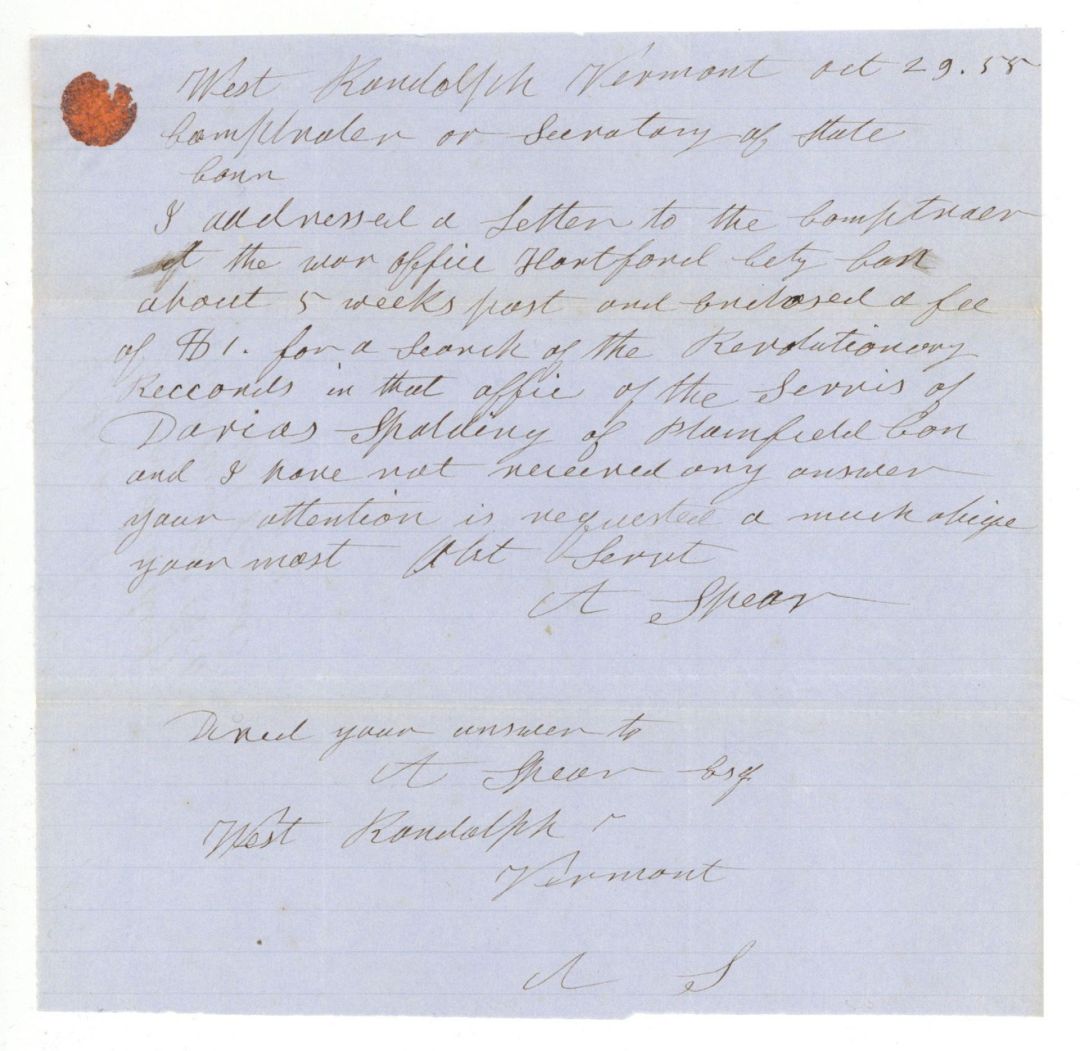 West Randolph Vermont oct 29. 55
Comptroler or Secratary of State
Conn
I addressed a Letter to the Comptroler
at the war office Hartford City Con
about 5 weeks past and Enclosed a fee
of $1. for a Search of the Revolutionary
Reccords in that offic of the Servis of
Darias Spalding of Plainfield Con
and I have not received any answer
your attention is requested & much oblige
your most Obt Servt
A Spear
Direct your answer to
A Spear Esq
West Randolph
Vermont
A S